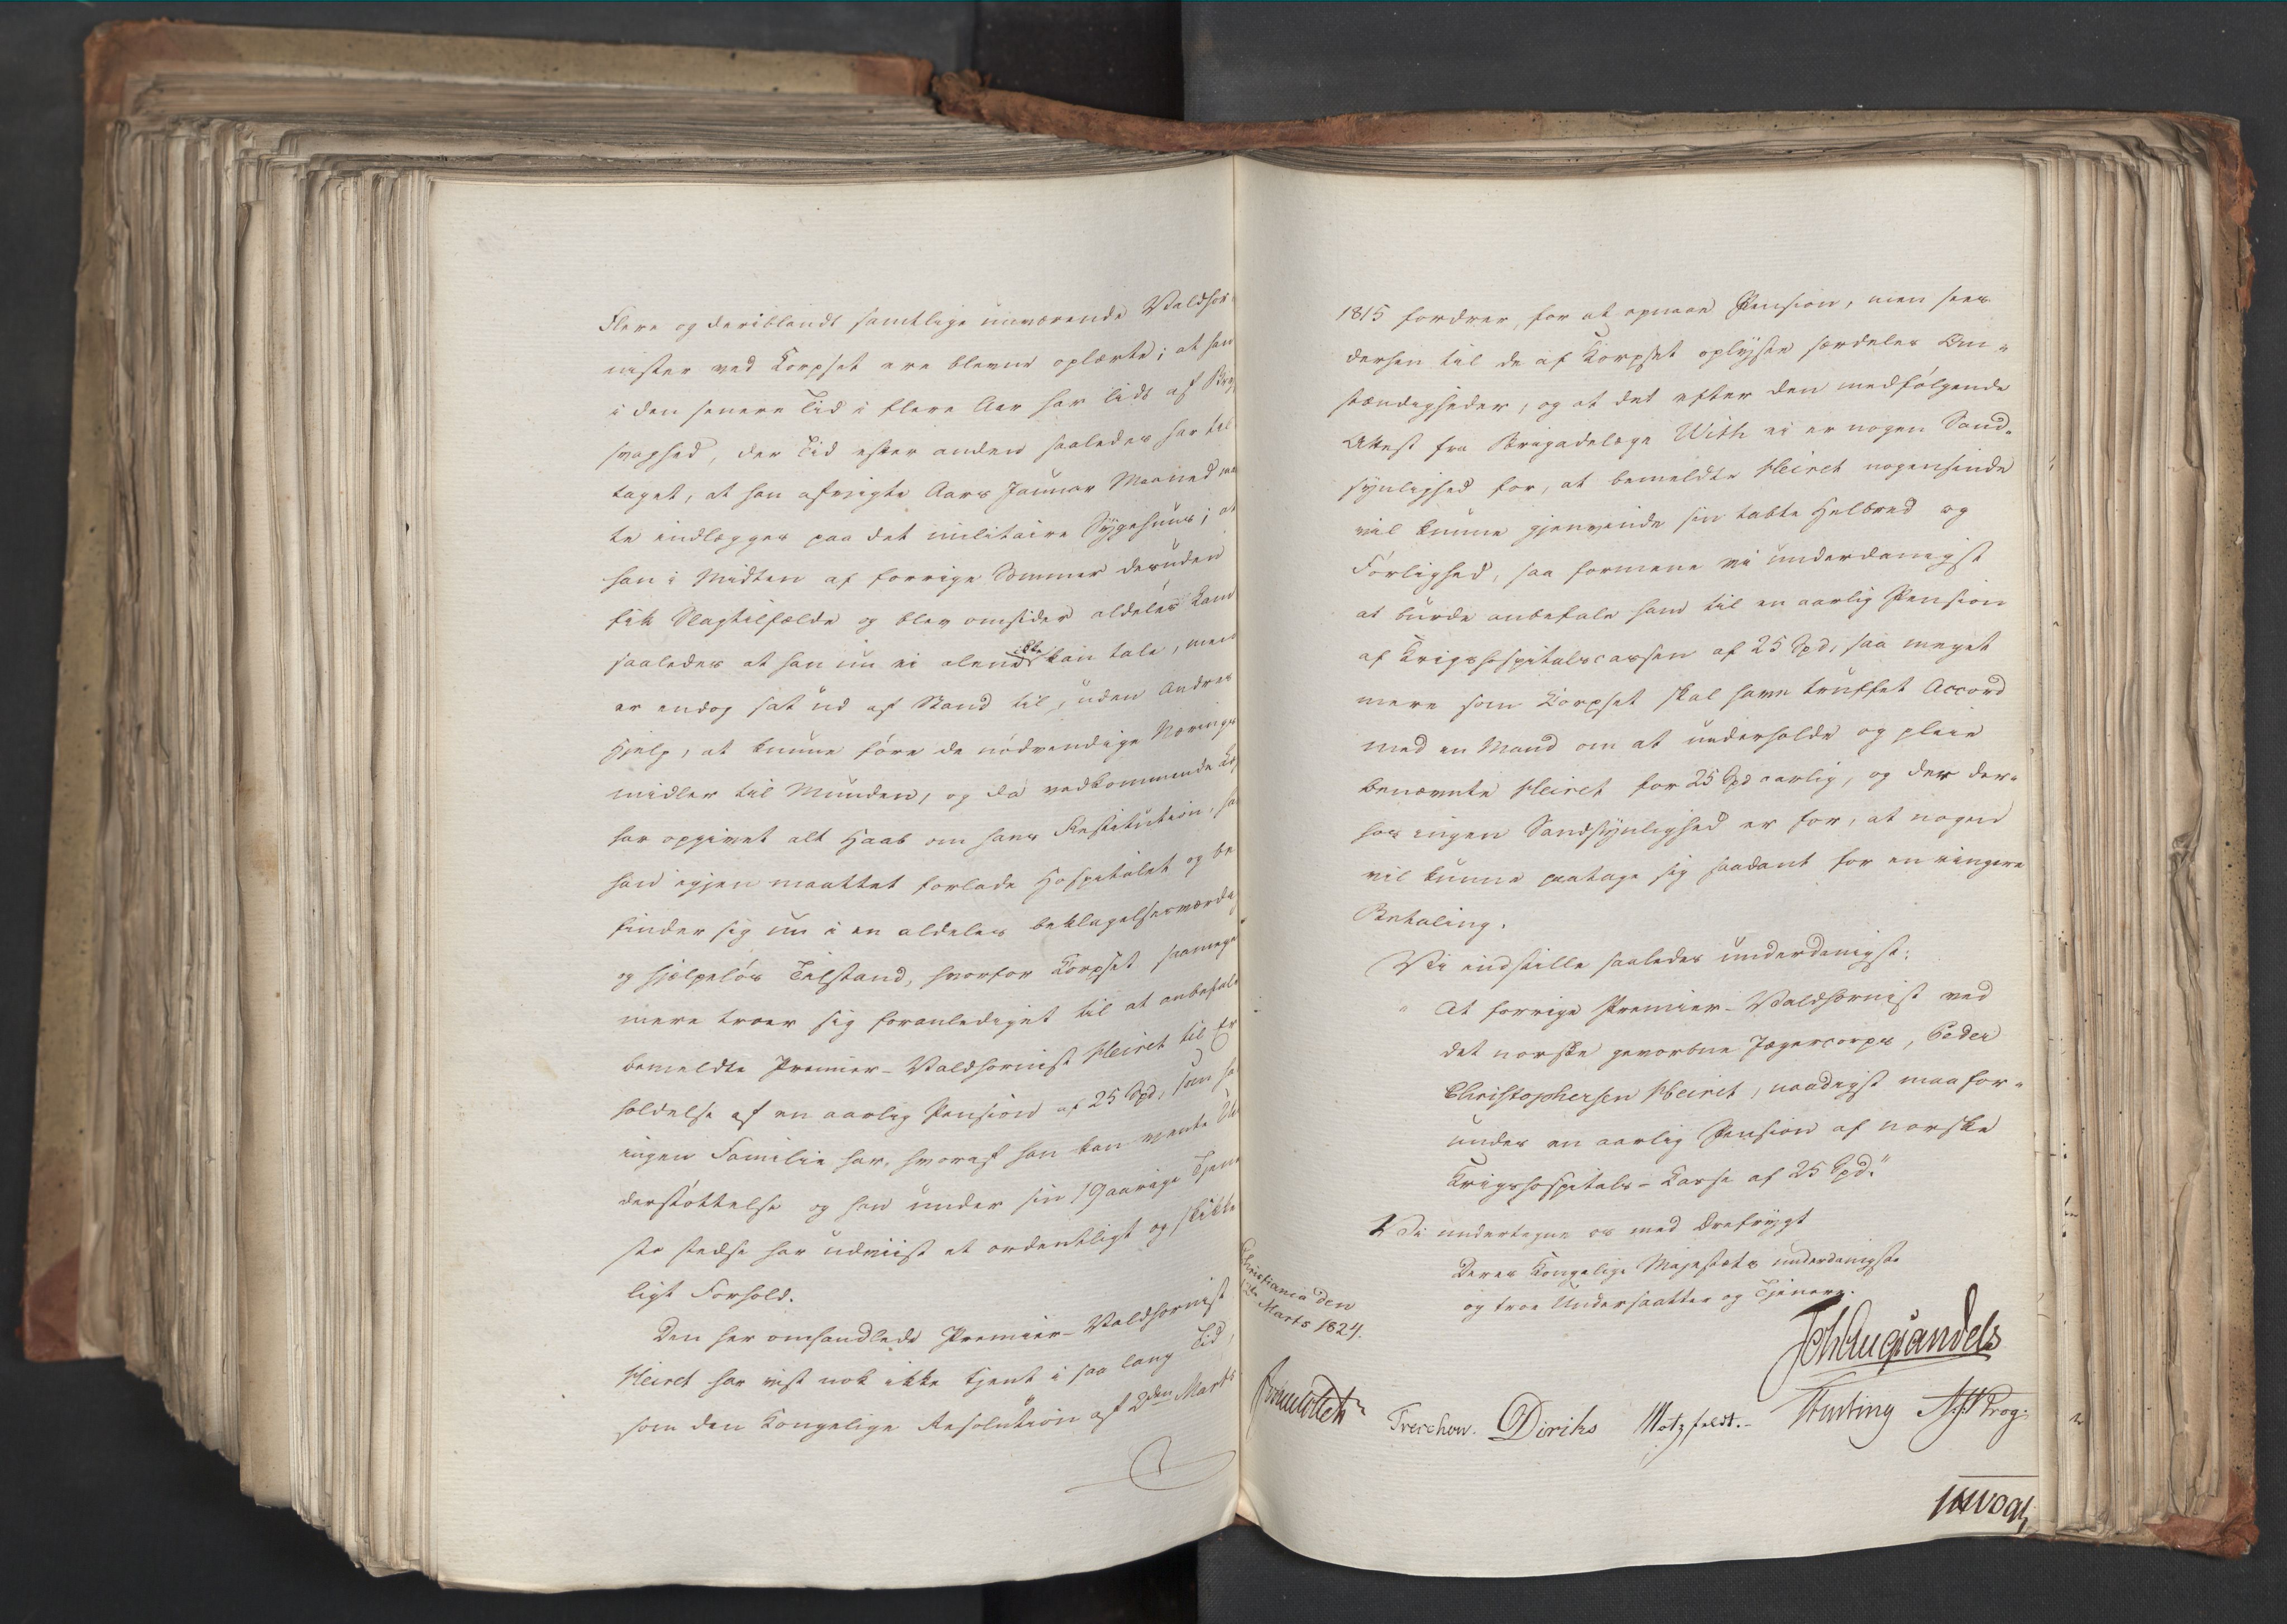 Flere og deriblandt samtlige nuværende Valdhor-
nister ved Korpset ere blevne oplærte; at han
i den senere Tid i flere Aar har lidt af Bryst
svaghed, der Tid efter anden saaledes har til
taget, at han afvigte Aars Januar Maaned maat
te indlægges paa det militaire Sygehuus; at
han i Midten af forrige Sommer desuden
fik Slagtilfælde og blev omsider aldeles lam
saaledes at han nu ei alene ikke kan tale, men
er endog sat ud af Stand til, uden Andres
Hjelp, at kunne føre de nødvendige Nærings
midler til Munden, og da vedkommende
har opgivet alt Haab om hans Restitution, har
han igjen maattet forlade Hospitalet og be
finder sig nu i en aldeles beklagelsesværdig
og hjælpeløs Tilstand, hvorfor Korpset saameget
mere troer sig foranlediget til at anbefale
bemeldte Premier-Valdhornist Heiret til Er
holdelse af en aarlig Pension af 25 Spd, som han
ingen Familie har, hvoraf han kan vente Un
derstøttelse og han under sin 19aarige Tjene
ste stedse har udviist et ordentligt og skikke
ligt Forhold.
Den her omhandlede Premier-Valdhornist
Heiret har vist nok ikke tjent i saa lang Tid,
som den Kongelige Resolution af 2den Marts
1815 fordrer, for at opnaae Pension, men hen
dersen til de af Korpset oplyste særdeles Om-
stændigheder, og at det efter den medfølgende
Attest fra Brigadelæge With ei er nogen Sand-
synlighed for, at bemeldte Heiret nogensinde
vil kunne gjenvinde sin tabte Helbred og
Førlighed, saa formene vi underdanigst
at burde anbefale ham til en aarlig Pension
af Krigshospitalscassen af 25 Spd, saa meget
mere som Korpset skal have truffet Accord
med en Mand om at underholde og pleie
benævnte Heiret for 25 Spd aarlig, og der der-
hos ingen Sandsynlighed er for, at nogen
vil kunne paatage sig saadant for en ringere
Betaling.
Vi indstille saaledes underdanigst:
" At forrige Premier-Valdhornist ved
det norske gevorbne Jægercorps, Peder
Christophersen Heiret, naadigst maa for-
undes en aarlig Pension af norske
Krigshospitals-Kasse af 25 Spd."
Vi undertegne os med Ærefrygt
Deres Kongelige Majestæts underdanigste
og troe Undersaatter og Tjenere.
Christiania den
Marts 1824.
Joh Aug Sandels
Sommerhielm Treschow. Diriks Motzfeldt. Fasting Krog.
Vogt